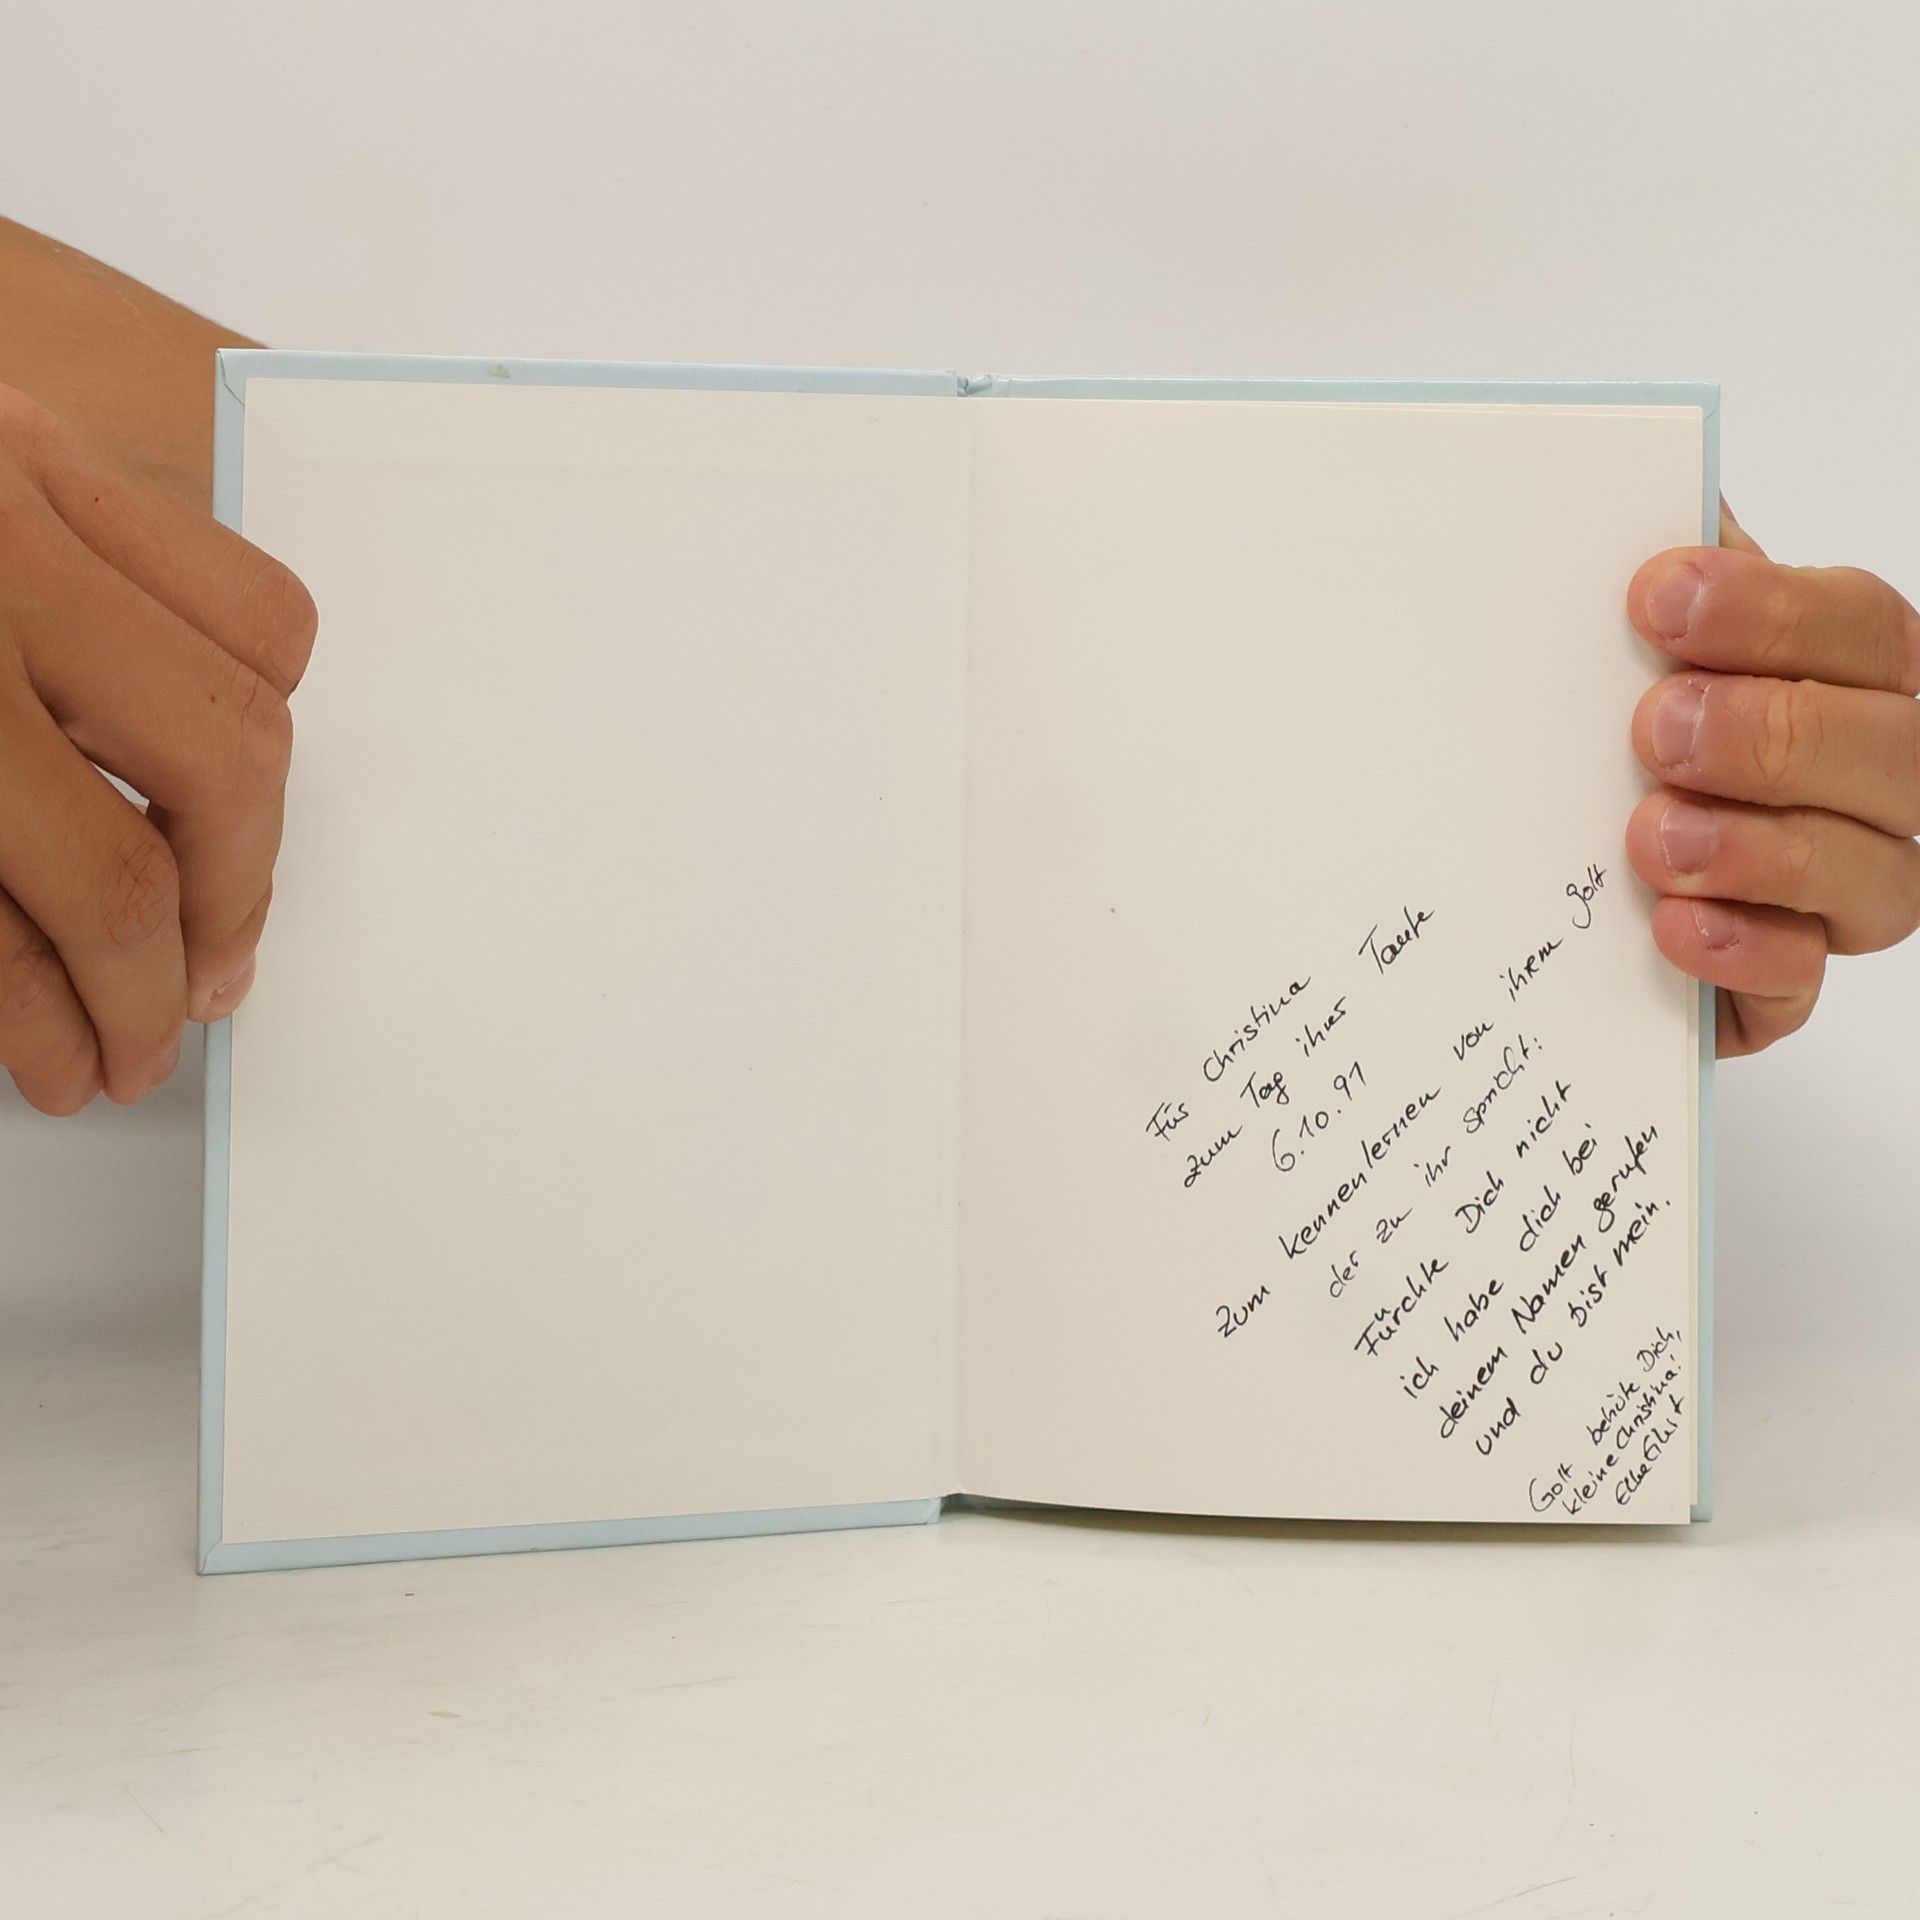 Für Christina
zum Tag ihrer Taufe
6.10.91
zum kennenlernen von ihrem Gott
der zu ihr spricht:
Fürchte Dich nicht
ich habe dich bei
deinem Namen gerufen
und du bist mein.
Gott behüte Dich,
kleine Christina!